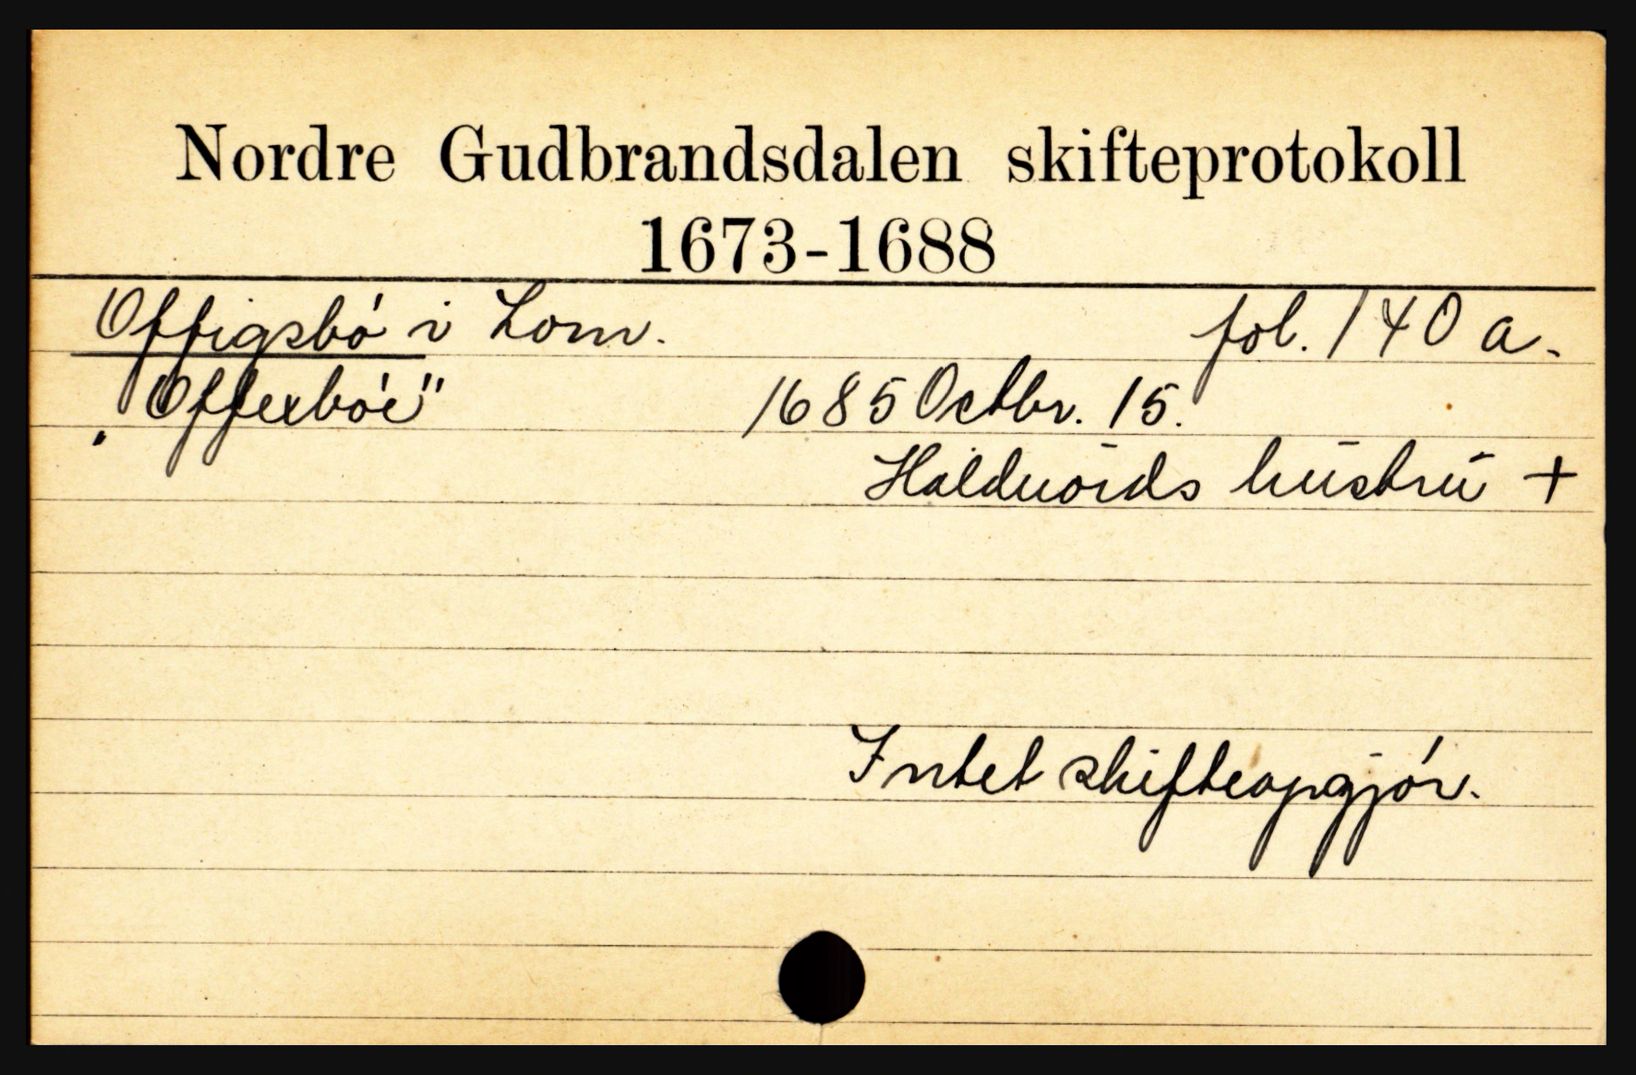 Nordre Gudbrandsdalen skifteprotokoll
1673-1688
Offigsbó i Lom. fol. 140 a.
„Offexbóe" 1685 Octbr. 15.
Halduords hustru +
Intet skifteopgjór.